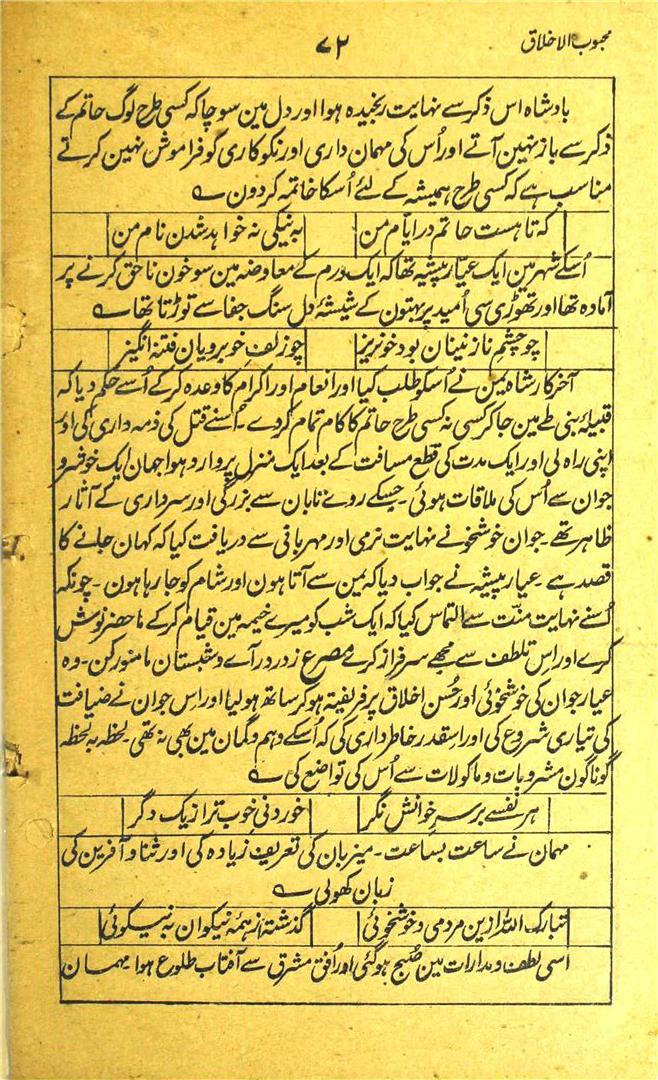 محبوب الاخلاق
۷۳
بادشاہ اس ذکر سے نہایت رنجیدہ ہوا اور دل مین سوچا کہ کسی طرح لوگ حاتم کے
ذکر سے باز نہین آتے اور اُس کی مہمان داری اور نکوکاری کو فراموش نہین کرتے
مناسب ہے کہ کسی طرح ہمیشہ کے لئے اُسکا خاتمہ کردون ؎
کہ تا ہست حاتم در ایام من
بہ نیکی نہ خواہد شدن نام من
اُسکے شہر مین ایک عیّار پیشیہ تھا کہ ایک درم کے معاوضہ مین سو خون ناحق کرنے پر
آمادہ تھا اور تھوڑی سی اُمید پر بہتون کے شیشۂ دل سنگ جفا سے توڑتا تھا ؎
چو چشم نازنینان بود خونریز
چو زلف خوبرویان فتنہ انگیز
آخرکار شاہ یمن نے اُسکو طلب کیا اور انعام اور اکرام کا وعدہ کرکے اُسے حکم دیا کہ
قبیلۂ بنی طے مین جاکر کسی نہ کسی طرح حاتم کا کام تمام کردے ۔ اُسنے قتل کی ذمہ داری کی اور
اپنی راہ لی اور ایک مدت کی قطع مسافت کے بعد ایک منزل پر وارد ہوا جہان ایک خوشرو
جوان سے اُس کی ملاقات ہوئی ۔ جسکے روے تابان سے بزرگی اور سرداری کے آثار
ظاہر تھے ۔ جوان خوشخو نے نہایت نرمی اور مہربانی سے دریافت کیا کہ کہان جانے کا
قصد ہے ۔ عیار پیشہ نے جواب دیا کہ یمن سے آتا ہون اور شام کو جا رہا ہون ۔ چونکہ
اُسنے نہایت منّت سے التماس کیا کہ ایک شب کو میرے خیمہ مین قیام کرکے ماحضر نوش
کرے اور اس تلطف سے مجھے سرفراز کرے مصرع زدر درآے و شبستان ما منور کن ۔ وہ
عیار جوان کی خوشخوئی اور حُسن اخلاق پر فریفتہ ہوکر ساتھ ہولیا اور اس جوان نے ضیافت
کی تیاری شروع کی اور اسقدر خاطرداری کی کہ اُسکے وہم و گمان مین بھی نہ تھی ۔ لحظہ بہ لحظہ
گوناگون مشروبات و ماکولات سے اُس کی تواضع کی ؎
ہر نفسے بر سر خوانش نگر
خوردنی خوب تر از یک دگر
مہمان نے ساعت بساعت ۔ میزبان کی تعریف زیادہ کی اور ثنا و آفرین کی
زبان کھولی ؎
تبارک اللہ ازین مردمی و خوشخوئی
گذشتہ از ہمہ نیکوان بہ نیکوئی
اسی لطف و مدارات مین صُبح ہوگئی اور اُفق مشرق سے آفتاب طلوع ہوا مہمان